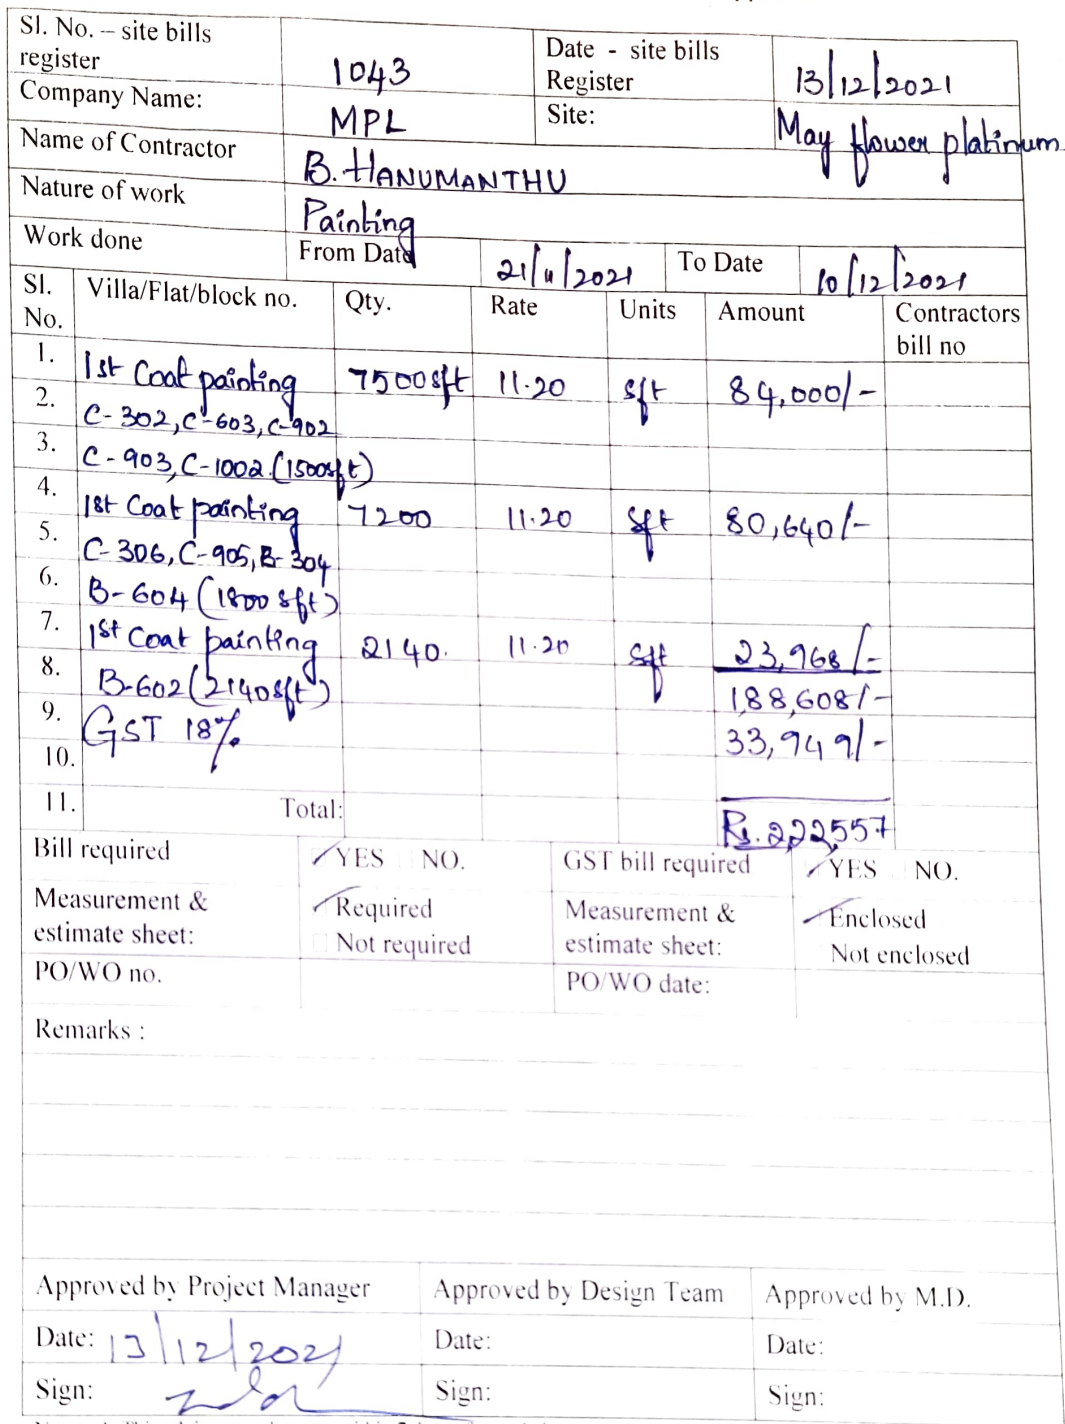 Sl. No. – site bills register 1043 Date - site bills Register 13/12/2021
Company Name: MPL Site: May flower platinum
Name of Contractor B. HANUMANTHU
Nature of work Painting
Work done From Date 21/11/2021 To Date 10/12/2021
Sl. No. Villa/Flat/block no. Qty. Rate Units Amount Contractors bill no
1. 1st Coat painting 7500sft 11.20 sft 84,000/-
2. C-302, C-603, C-902
3. C-903, C-1002 (1500sft)
4. 1st Coat painting 7200 11.20 sft 80,640/-
5. C-306, C-905, B-304
6. B-604 (1800 sft)
7. 1st Coat painting 2140. 11.20 sft 23,968/-
8. B-602 (2140sft) 1,88,608/-
9. GST 18% 33,949/-
10.
11. Total: Rs. 2,22,557
Bill required YES NO. GST bill required YES NO.
Measurement & estimate sheet: Required Not required Measurement & estimate sheet: Enclosed Not enclosed
PO/WO no. PO/WO date:
Remarks :
Approved by Project Manager Approved by Design Team Approved by M.D.
Date: 13/12/2021 Date: Date:
Sign: Sign: Sign: